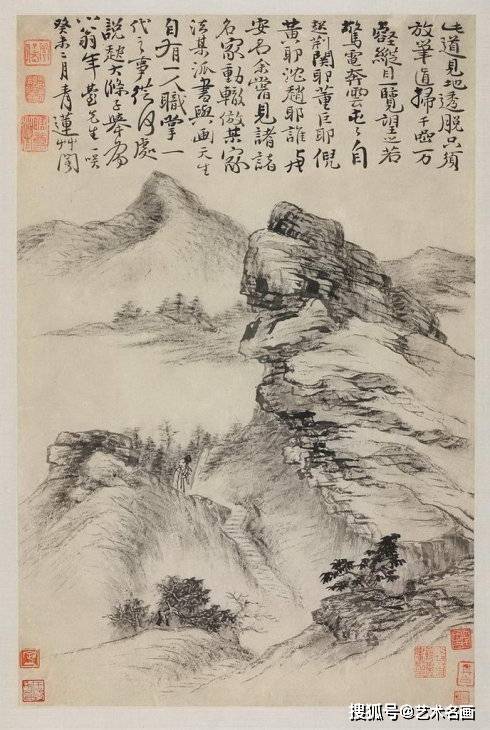 此道見地透脫只須
放筆直掃千巖万
壑縱目一覽望之若
驚電奔雲屯屯自
起荊關耶董巨耶倪
黃耶沈趙耶誰與
安名余嘗見諸諸
名家動輒倣某家
法某派書與画天生
自有一人職掌一
代之事從何處
說起大滌子舉為
翁年先生一咲
癸未二月青蓮艸閣
搜狐号@艺术名画